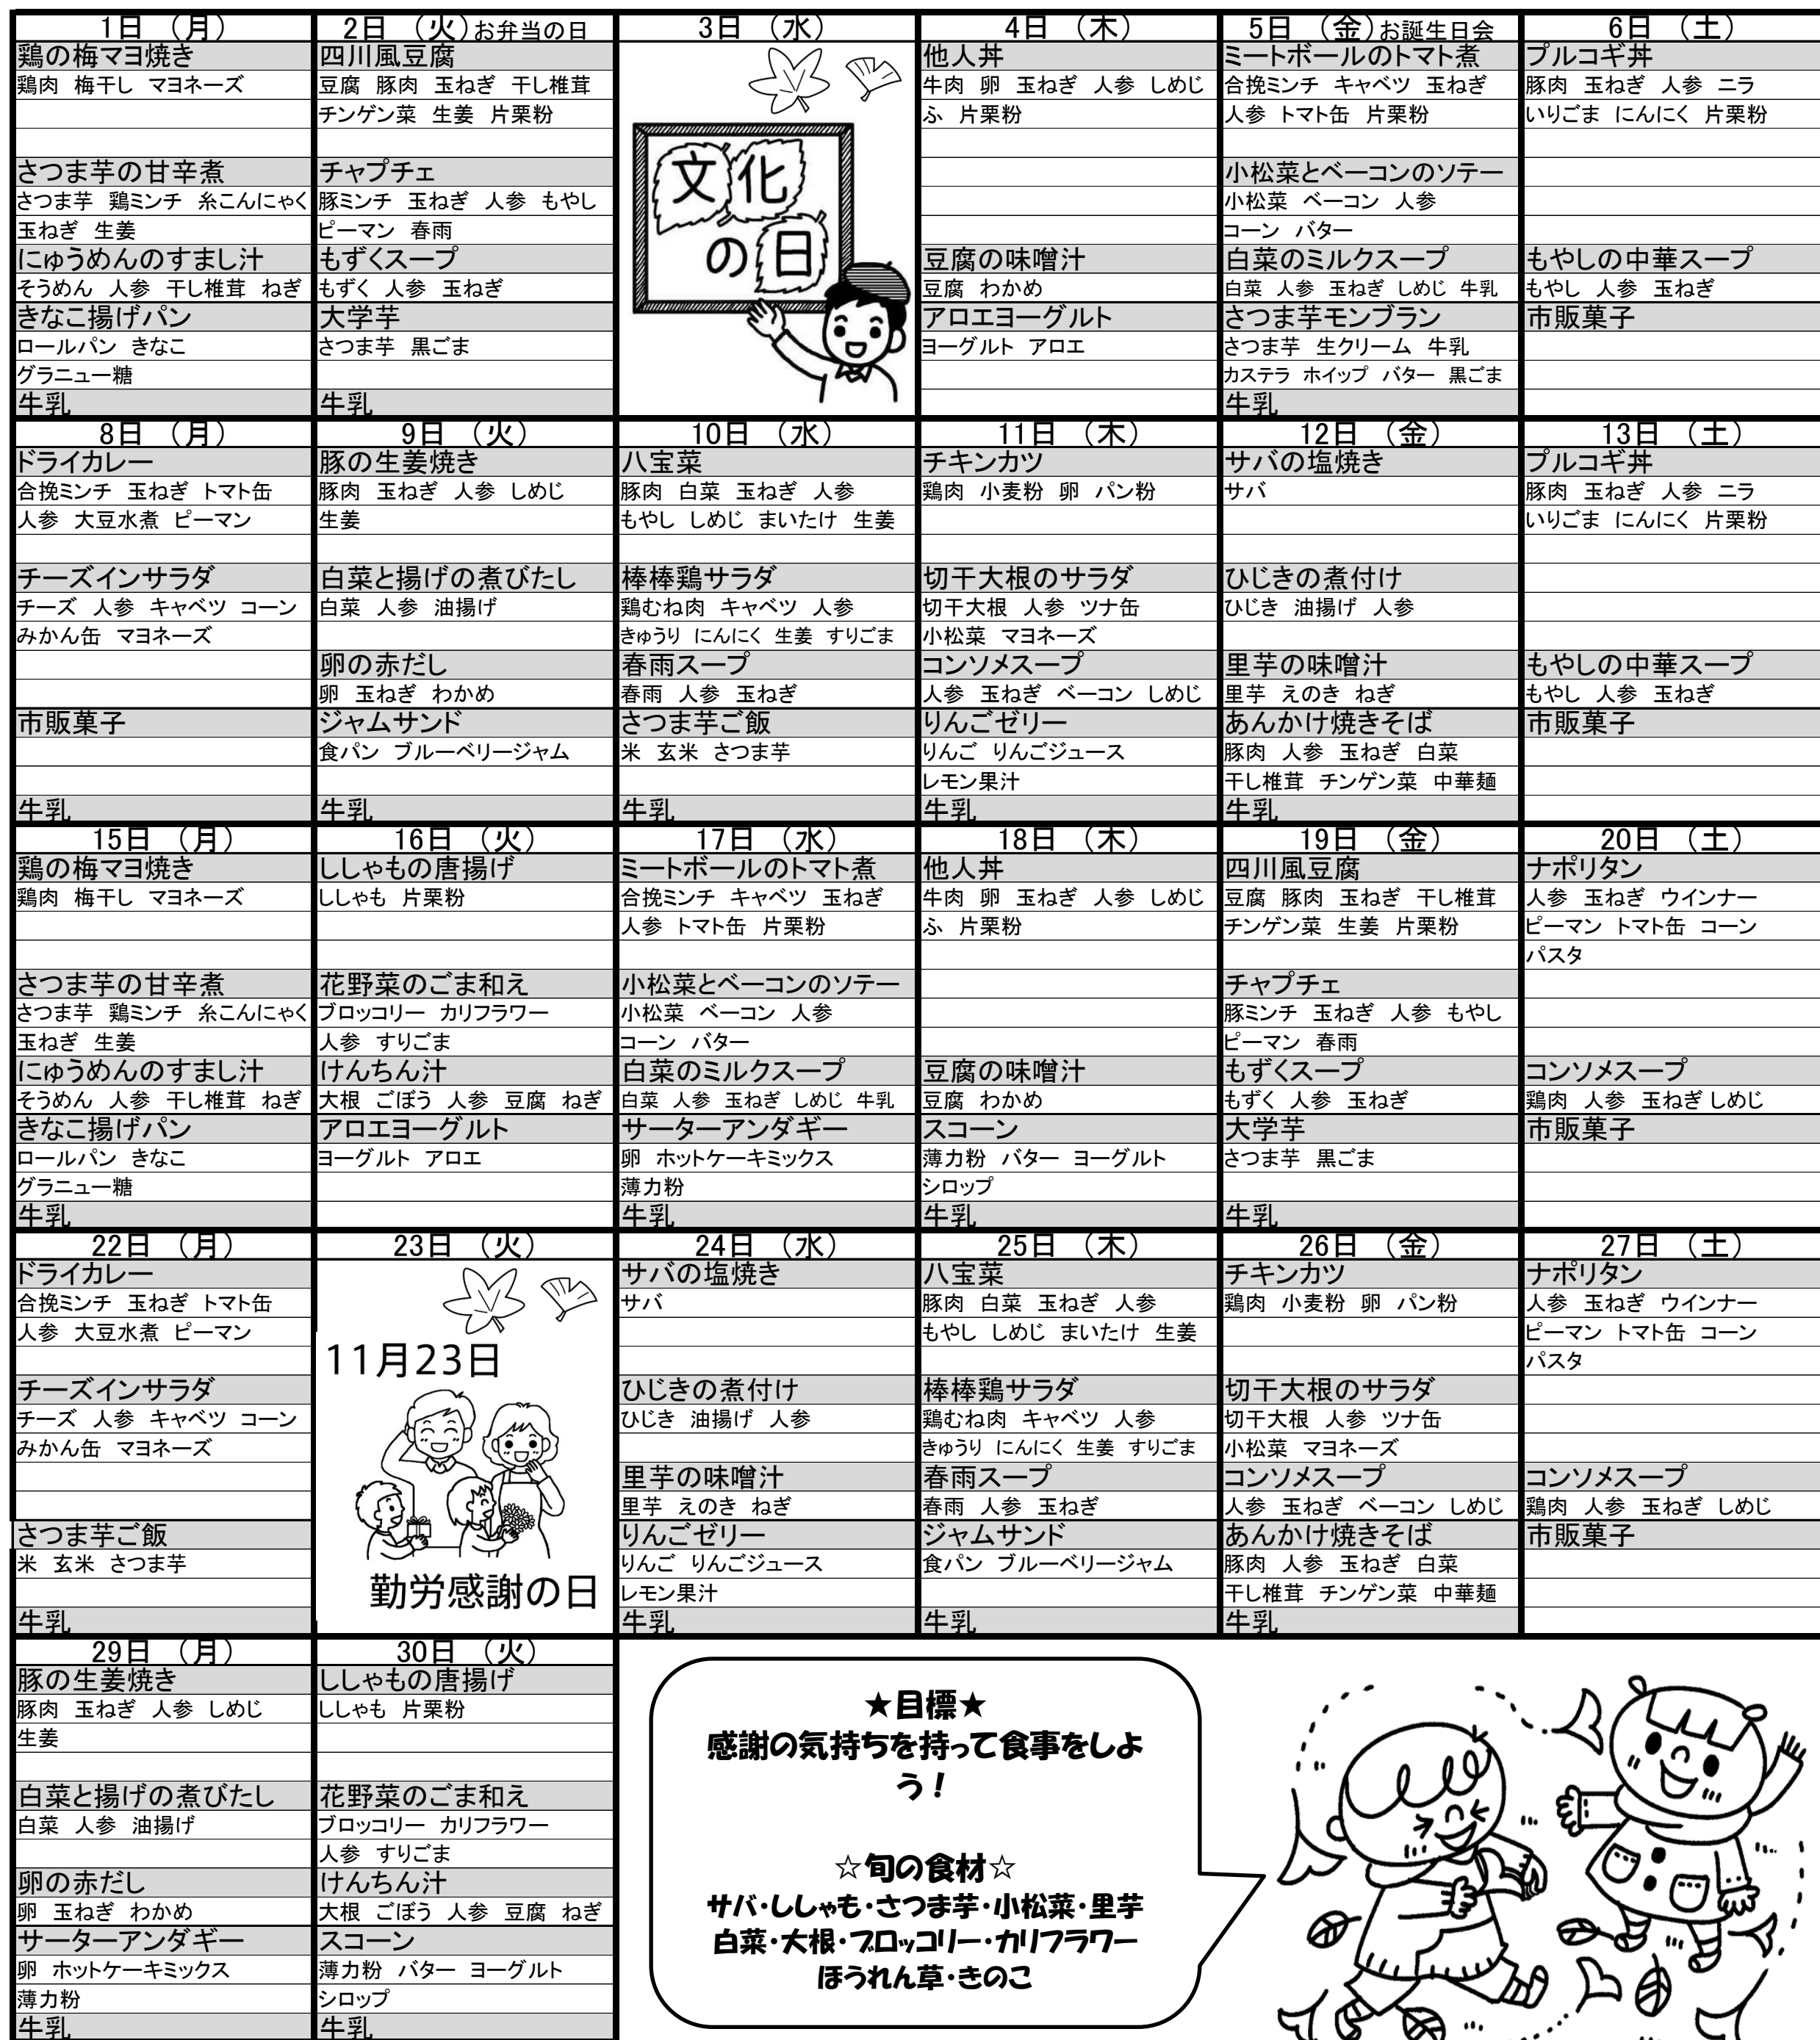 1日 (月)
鶏の梅マヨ焼き
鶏肉 梅干し マヨネーズ
さつま芋の甘辛煮
さつま芋 鶏ミンチ 糸こんにゃく
玉ねぎ 生姜
にゅうめんのすまし汁
そうめん 人参 干し椎茸 ねぎ
きなこ揚げパン
ロールパン きなこ
グラニュー糖
牛乳
2日 (火)お弁当の日
四川風豆腐
豆腐 豚肉 玉ねぎ 干し椎茸
チンゲン菜 生姜 片栗粉
チャプチェ
豚ミンチ 玉ねぎ 人参 もやし
ピーマン 春雨
もずくスープ
もずく 人参 玉ねぎ
大学芋
さつま芋 黒ごま
牛乳
3日 (水)
文化
の日
4日 (木)
他人丼
牛肉 卵 玉ねぎ 人参 しめじ
ふ 片栗粉
豆腐の味噌汁
豆腐 わかめ
アロエヨーグルト
ヨーグルト アロエ
5日 (金)お誕生日会
ミートボールのトマト煮
合挽ミンチ キャベツ 玉ねぎ
人参 トマト缶 片栗粉
小松菜とベーコンのソテー
小松菜 ベーコン 人参
コーン バター
白菜のミルクスープ
白菜 人参 玉ねぎ しめじ 牛乳
さつま芋モンブラン
さつま芋 生クリーム 牛乳
カステラ ホイップ バター 黒ごま
牛乳
6日 (土)
プルコギ丼
豚肉 玉ねぎ 人参 ニラ
いりごま にんにく 片栗粉
もやしの中華スープ
もやし 人参 玉ねぎ
市販菓子
8日 (月)
ドライカレー
合挽ミンチ 玉ねぎ トマト缶
人参 大豆水煮 ピーマン
チーズインサラダ
チーズ 人参 キャベツ コーン
みかん缶 マヨネーズ
市販菓子
牛乳
9日 (火)
豚の生姜焼き
豚肉 玉ねぎ 人参 しめじ
生姜
白菜と揚げの煮びたし
白菜 人参 油揚げ
卵の赤だし
卵 玉ねぎ わかめ
ジャムサンド
食パン ブルーベリージャム
牛乳
10日 (水)
八宝菜
豚肉 白菜 玉ねぎ 人参
もやし しめじ まいたけ 生姜
棒棒鶏サラダ
鶏むね肉 キャベツ 人参
きゅうり にんにく 生姜 すりごま
春雨スープ
春雨 人参 玉ねぎ
さつま芋ご飯
米 玄米 さつま芋
牛乳
11日 (木)
チキンカツ
鶏肉 小麦粉 卵 パン粉
切干大根のサラダ
切干大根 人参 ツナ缶
小松菜 マヨネーズ
コンソメスープ
人参 玉ねぎ ベーコン しめじ
りんごゼリー
りんご りんごジュース
レモン果汁
牛乳
12日 (金)
サバの塩焼き
サバ
ひじきの煮付け
ひじき 油揚げ 人参
里芋の味噌汁
里芋 えのき ねぎ
あんかけ焼きそば
豚肉 人参 玉ねぎ 白菜
干し椎茸 チンゲン菜 中華麺
牛乳
13日 (土)
プルコギ丼
豚肉 玉ねぎ 人参 ニラ
いりごま にんにく 片栗粉
もやしの中華スープ
もやし 人参 玉ねぎ
市販菓子
15日 (月)
鶏の梅マヨ焼き
鶏肉 梅干し マヨネーズ
さつま芋の甘辛煮
さつま芋 鶏ミンチ 糸こんにゃく
玉ねぎ 生姜
にゅうめんのすまし汁
そうめん 人参 干し椎茸 ねぎ
きなこ揚げパン
ロールパン きなこ
グラニュー糖
牛乳
16日 (火)
ししゃもの唐揚げ
ししゃも 片栗粉
花野菜のごま和え
ブロッコリー カリフラワー
人参 すりごま
けんちん汁
大根 ごぼう 人参 豆腐 ねぎ
アロエヨーグルト
ヨーグルト アロエ
17日 (水)
ミートボールのトマト煮
合挽ミンチ キャベツ 玉ねぎ
人参 トマト缶 片栗粉
小松菜とベーコンのソテー
小松菜 ベーコン 人参
コーン バター
白菜のミルクスープ
白菜 人参 玉ねぎ しめじ 牛乳
サーターアンダギー
卵 ホットケーキミックス
薄力粉
牛乳
18日 (木)
他人丼
牛肉 卵 玉ねぎ 人参 しめじ
ふ 片栗粉
豆腐の味噌汁
豆腐 わかめ
スコーン
薄力粉 バター ヨーグルト
シロップ
牛乳
19日 (金)
四川風豆腐
豆腐 豚肉 玉ねぎ 干し椎茸
チンゲン菜 生姜 片栗粉
チャプチェ
豚ミンチ 玉ねぎ 人参 もやし
ピーマン 春雨
もずくスープ
もずく 人参 玉ねぎ
大学芋
さつま芋 黒ごま
牛乳
20日 (土)
ナポリタン
人参 玉ねぎ ウインナー
ピーマン トマト缶 コーン
パスタ
コンソメスープ
鶏肉 人参 玉ねぎ しめじ
市販菓子
22日 (月)
ドライカレー
合挽ミンチ 玉ねぎ トマト缶
人参 大豆水煮 ピーマン
チーズインサラダ
チーズ 人参 キャベツ コーン
みかん缶 マヨネーズ
さつま芋ご飯
米 玄米 さつま芋
牛乳
23日 (火)
11月23日
勤労感謝の日
24日 (水)
サバの塩焼き
サバ
ひじきの煮付け
ひじき 油揚げ 人参
里芋の味噌汁
里芋 えのき ねぎ
りんごゼリー
りんご りんごジュース
レモン果汁
牛乳
25日 (木)
八宝菜
豚肉 白菜 玉ねぎ 人参
もやし しめじ まいたけ 生姜
棒棒鶏サラダ
鶏むね肉 キャベツ 人参
きゅうり にんにく 生姜 すりごま
春雨スープ
春雨 人参 玉ねぎ
ジャムサンド
食パン ブルーベリージャム
牛乳
26日 (金)
チキンカツ
鶏肉 小麦粉 卵 パン粉
切干大根のサラダ
切干大根 人参 ツナ缶
小松菜 マヨネーズ
コンソメスープ
人参 玉ねぎ ベーコン しめじ
あんかけ焼きそば
豚肉 人参 玉ねぎ 白菜
干し椎茸 チンゲン菜 中華麺
牛乳
27日 (土)
ナポリタン
人参 玉ねぎ ウインナー
ピーマン トマト缶 コーン
パスタ
コンソメスープ
鶏肉 人参 玉ねぎ しめじ
市販菓子
29日 (月)
豚の生姜焼き
豚肉 玉ねぎ 人参 しめじ
生姜
白菜と揚げの煮びたし
白菜 人参 油揚げ
卵の赤だし
卵 玉ねぎ わかめ
サーターアンダギー
卵 ホットケーキミックス
薄力粉
牛乳
30日 (火)
ししゃもの唐揚げ
ししゃも 片栗粉
花野菜のごま和え
ブロッコリー カリフラワー
人参 すりごま
けんちん汁
大根 ごぼう 人参 豆腐 ねぎ
スコーン
薄力粉 バター ヨーグルト
シロップ
牛乳
★目標★
感謝の気持ちを持って食事をしよ
う!
☆旬の食材☆
サバ・ししゃも・さつま芋・小松菜・里芋
白菜・大根・ブロッコリー・カリフラワー
ほうれん草・きのこ